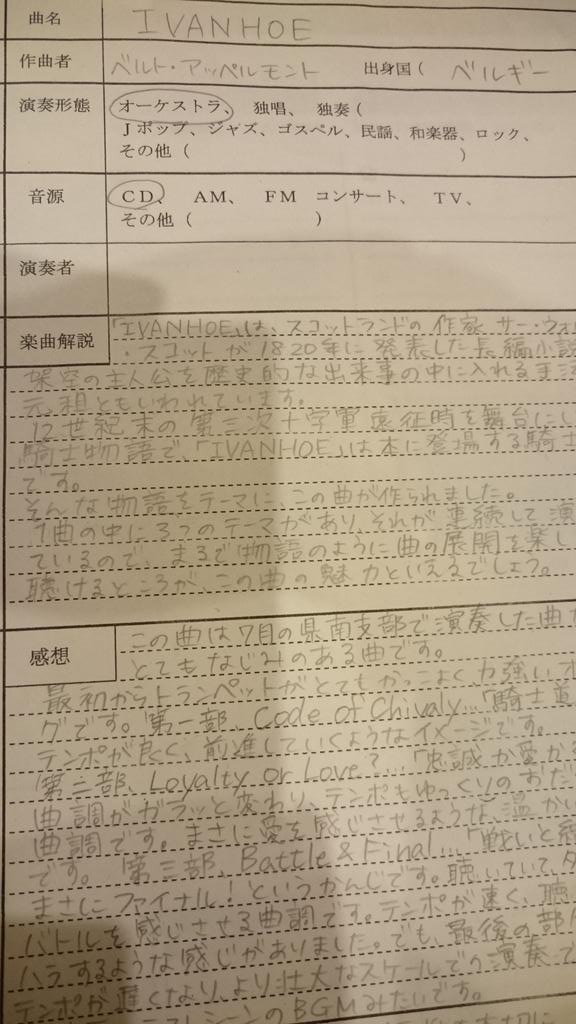 曲名 IVANHOE
作曲者 ベルト・アッペルモント 出身国( ベルギー
演奏形態 オーケストラ、 独唱、 独奏(
Jポップ、ジャズ、ゴスペル、民謡、和楽器、ロック、
その他( )
音源 CD、 AM、 FM コンサート、 TV、
その他( )
演奏者
楽曲解説 「IVANHOE」は、スコットランドの作家 サー・ウォ
・スコットが1820年に発表した長編小説
架空の主人公を歴史的な出来事の中に入れる手法
元祖ともいわれています。
12世紀末の第三次十字軍遠征時を舞台にし
騎士物語で、「IVANHOE」は本に登場する騎士
です。
そんな物語をテーマに、この曲が作られました。
1曲の中に3つのテーマがあり、それが連続して演
ているので、まるで物語のように曲の展開を楽し
聴けるところが、この曲の魅力といえるでしょう。
感想 この曲は7月の県南支部で演奏した曲
とてもなじみのある曲です。
最初からトランペットがとてもかっこよく力強いオ
グです。第一部、Code of Chivaly…「騎士道
テンポが良く、前進していくようなイメージです。
第二部、Loyalty or Love?…「忠誠か愛か
曲調がガラッと変わり、テンポもゆっくりのおだ
曲調です。まさに愛を感じさせるような、温かい
です。 第三部、Battle & Final…「戦いと
まさにファイナル!というかんじです。聴いていて
バトルを感じさせる曲調です。テンポが速く、聴
ハラするような感じがありました。でも、最後の部
テンポが遅くなり、より壮大なスケールでの演奏で
シーンのBGMみたいです。